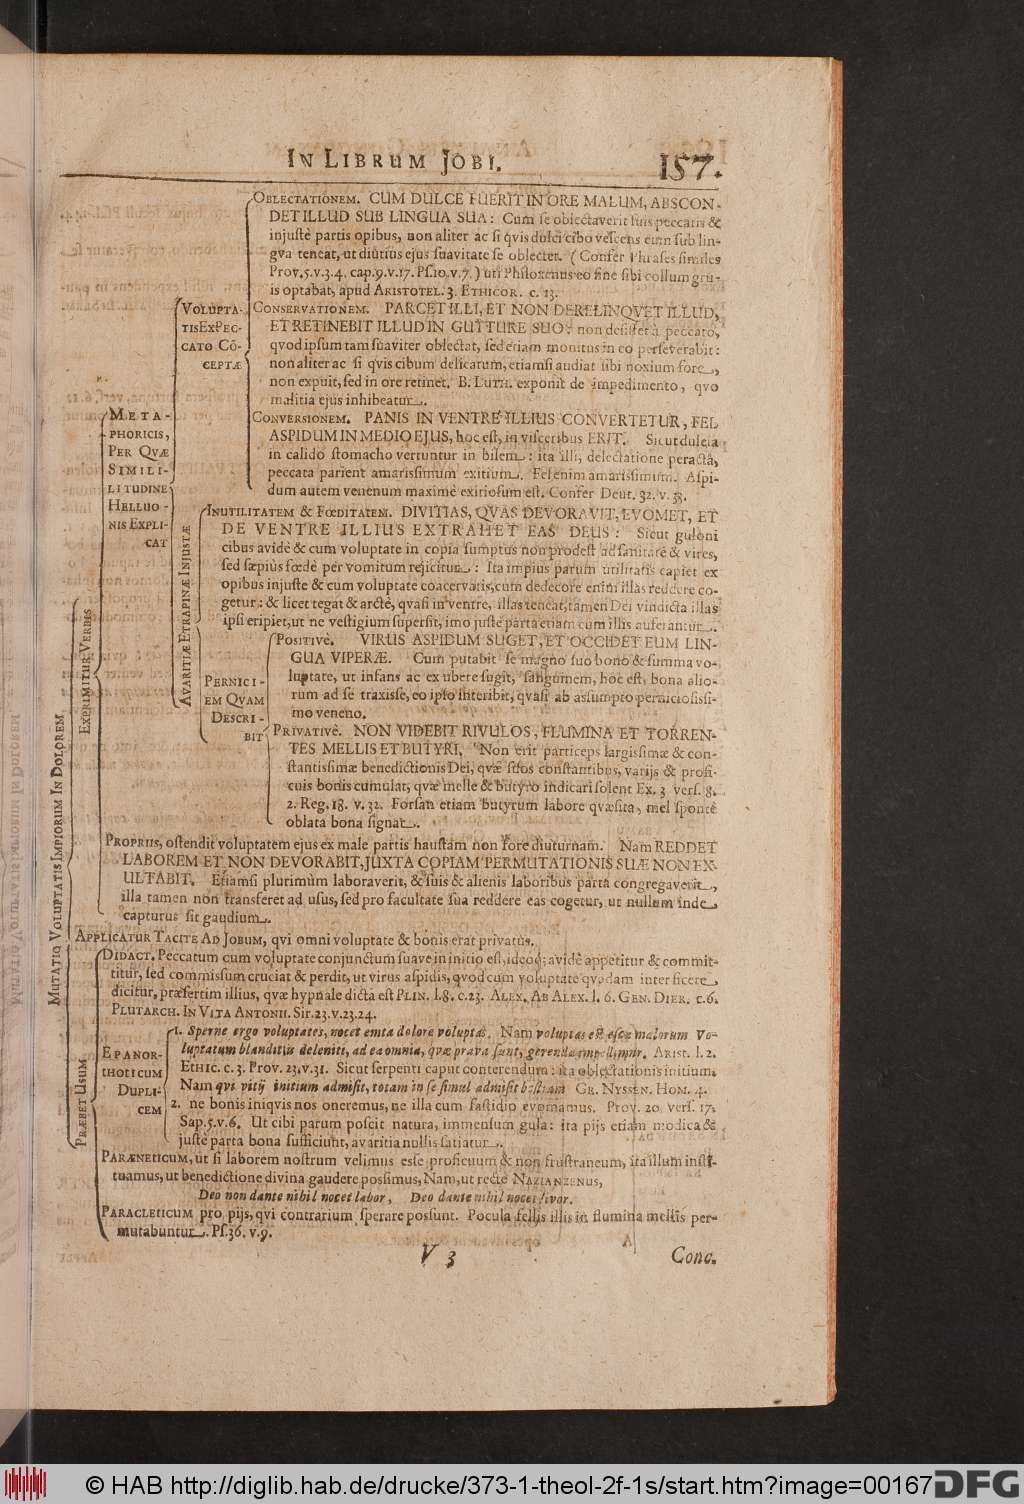 IN LIBRUM JOBI. 157.
OBLECTATIONEM. CUM DULCE FUERIT IN ORE MALUM, ABSCON-
DET ILLUD SUB LINGUA SUA: Cum ſe oblectaverit ſuis peccatis &
injuſtè partis opibus, non aliter ac ſi qvis dulci cibo veſcens eum ſub lin-
gva teneat, ut diutius ejus ſuavitate ſe oblectet. (Confer Phraſes ſimiles
Prov. 5. v. 3. 4. cap. 9. v. 17. Pſ. 10. v. 7.) uti Philoxenus eo fine ſibi collum gru-
is optabat, apud ARISTOTEL. 3. ETHICOR. c. 13.
VOLUPTA-
TIS EX PEC-
CATO CÕ-
CEPTÆ
CONSERVATIONEM. PARCET ILLI, ET NON DERELINQVET ILLUD,
ET RETINEBIT ILLUD IN GUTTURE SUO: non deſiſtet à peccato,
qvod ipſum tam ſuaviter oblectat, ſed etiam monitus in eo perſeverabit:
non aliter ac ſi qvis cibum delicatum, etiamſi audiat ſibi noxium fore,
non expuit, ſed in ore retinet. B. LUTH. exponit de impedimento, qvo
malitia ejus inhibeatur.
CONVERSIONEM. PANIS IN VENTRE ILLIUS CONVERTETUR, FEL
ASPIDUM IN MEDIO EJUS, hoc eſt, in viſceribus ERIT. Sicut dulcia
in calido ſtomacho vertuntur in bilem: ita illi, delectatione peractâ,
peccata parient amarisſimum exitium. Fel enim amarisſimum. Aſpi-
dum autem venenum maximè exitioſum eſt. Confer Deut. 32. v. 33.
META-
PHORICIS,
PER QVÆ
SIMILI-
LITUDINE
HELLUO-
NIS EXPLI-
CAT
AVARITIÆ ET RAPINÆ INJUSTÆ
INUTILITATEM & FŒDITATEM. DIVITIAS, QVAS DEVORAVIT, EVOMET, ET
DE VENTRE ILLIUS EXTRAHET EAS DEUS: Sicut guloni
cibus avidè & cum voluptate in copia ſumptus non prodeſt ad ſanitatê & vires,
ſed ſæpiùs fœdè per vomitum rejicitur: Ita impius parum utilitatis capiet ex
opibus injuſte & cum voluptate coacervatis, cum dedecore enim illas reddere co-
getur: & licet tegat & arctè, qvaſi in ventre, illas teneat, tamen Dei vindicta illas
ipſi eripiet, ut ne veſtigium ſuperſit, imo juſtè parta etiam cum illis auferantur.
PERNICI-
EM QVAM
DESCRI-
BIT
POSITIVÈ. VIRUS ASPIDUM SUGET, ET OCCIDET EUM LIN-
GUA VIPERÆ. Cum putabit ſe magno ſuo bono & ſumma vo-
luptate, ut infans ac ex ubere ſugit, ſanguinem, hoc eſt, bona alio-
rum ad ſe traxisſe, eo ipſo interibit, qvaſi ab asſumpto pernicioſisſi-
mo veneno.
PRIVATIVÈ. NON VIDEBIT RIVULOS, FLUMINA ET TORREN-
TES MELLIS ET BUTYRI. Non erit particeps largisſimæ & con-
ſtantisſimæ benedictionis Dei, qvæ ſuos conſtantibus, varijs & profi-
cuis bonis cumulat, qvæ melle & butyro indicari ſolent Ex. 3. verſ. 8.
2. Reg. 18. v. 32. Forſan etiam butyrum labore qvæſita, mel ſponte
oblata bona ſignat.
EXPRIMITUR VERBIS
PROPRIIS, oſtendit voluptatem ejus ex male partis hauſtam non fore diuturnam. Nam REDDET
LABOREM ET NON DEVORABIT, JUXTA COPIAM PERMUTATIONIS SUÆ NON EX-
ULTABIT. Etiamſi plurimùm laboraverit, & ſuis & alienis laboribus parta congregaverit,
illa tamen non transferet ad uſus, ſed pro facultate ſua reddere eas cogetur, ut nullum inde
capturus ſit gaudium.
MUTATIO VOLUPTATIS IMPIORUM IN DOLOREM
APPLICATUR TACITE AD JOBUM, qvi omni voluptate & bonis erat privatus.
PRÆBET USUM
DIDACT. Peccatum cum voluptate conjunctum ſuave in initio eſt, ideoq; avidè appetitur & commit-
titur, ſed commiſſum cruciat & perdit, ut virus aſpidis, qvod cum voluptate qvodam interficere
dicitur, præſertim illius, qvæ hypnale dicta eſt PLIN. l. 8. c. 23. ALEX. AB ALEX. l. 6. GEN. DIER. c. 6.
PLUTARCH. IN VITA ANTONII. Sir. 23. v. 23. 24.
EPANOR-
THOTICUM
DUPLI-
CEM
1. Sperne ergo voluptates, nocet emta dolore voluptas. Nam voluptas est eſca malorum Vo-
luptatum blanditiæ deleniti, ad ea omnia, quæ prava ſunt, gerenda impellimur. ARIST. l. 2.
ETHIC. c. 3. Prov. 23. v. 31. Sicut ſerpenti caput conterendum: ita oblectationis initium.
Nam qvi vitij initium admiſit, totam in ſe ſimul admiſit beſtiam GR. NYSSEN. HOM. 4.
2. ne bonis iniqvis nos oneremus, ne illa cum faſtidio evomamus. Prov. 20. verſ. 17.
Sap. 5. v. 6. Ut cibi parum poſcit natura, immenſum gula: ita pijs etiam modica &
juſtè parta bona ſufficiunt, avaritia nullis ſatiatur.
PARÆNETICUM, ut ſi laborem noſtrum velimus esſe proficuum & non fruſtraneum, ita illum inſti-
tuamus, ut benedictione divina gaudere posſimus, Nam, ut rectè NAZIANZENUS,
Deo non dante nihil nocet labor, Deo dante nihil nocet livor.
PARACLETICUM pro pijs, qvi contrarium ſperare posſunt. Pocula fellis illis in flumina mellis per-
mutabuntur. Pſ. 36. v. 9.
V 3 Conc.
© HAB http://diglib.hab.de/drucke/373-1-theol-2f-1s/start.htm?image=00167 DFG